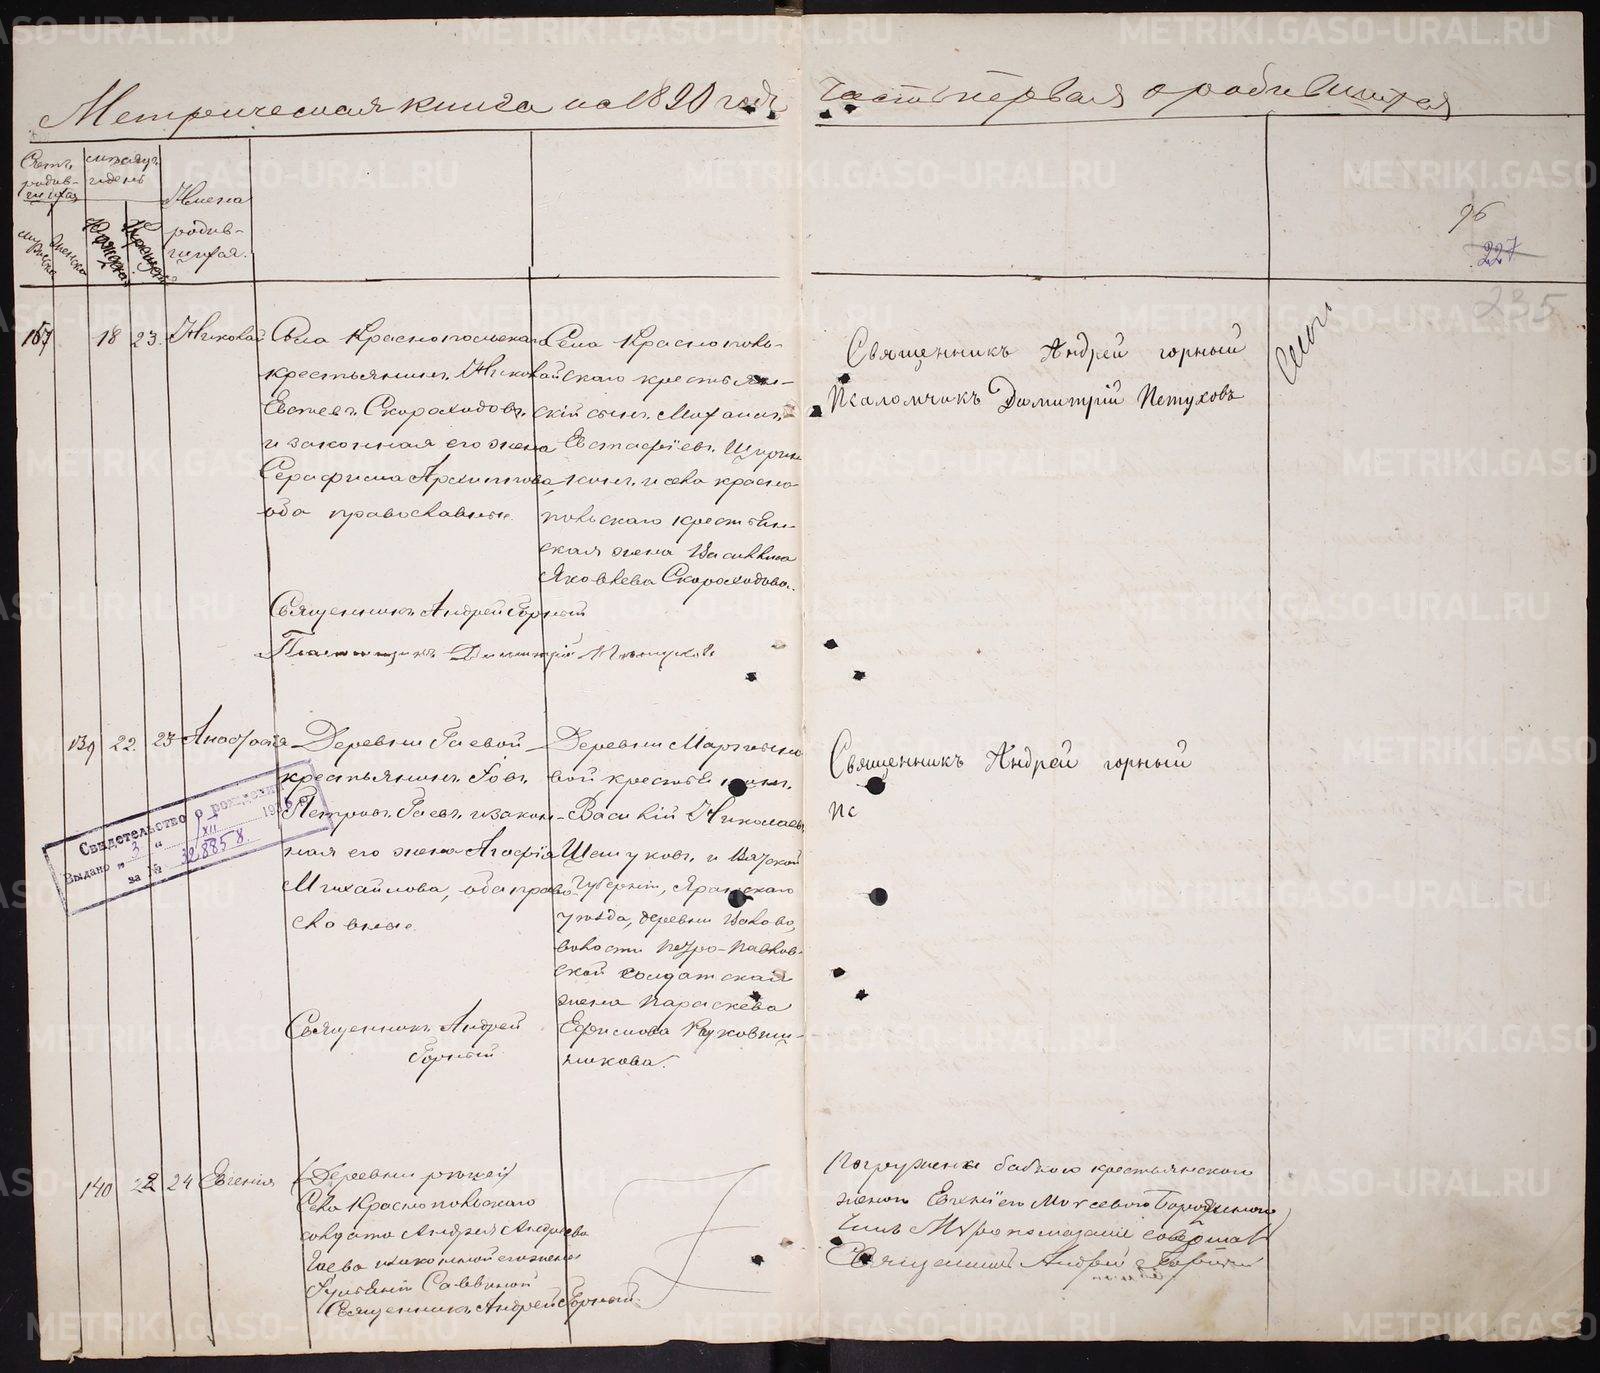 Метрическая книга на 1890 годъ
часть первая о родившихся
Счетъ
родив-
шихся
мѣсяцъ
и день
мужска
женска
рожденія
крещенія
Имена
родив-
шихся.
96
227
235
157
18
23.
Николай
Села Краснопольскаго
крестьянинъ Николай
Евстеевъ Скороходовъ,
и законная его жена
Серафима Архиппова
оба православные.
Села Краснополь-
скаго крестьян-
скій сынъ Михаилъ
Евстафіевъ Ширин-
кинъ и села красно-
польскаго крестьян-
ская жена Василиса
Яковлева Скороходова.
Священникъ Андрей Горный
Псаломщикъ Димитрій Пѣтуховъ
Священникъ Андрей горный
Псаломчикъ Димитрій Петуховъ
139
22.
23
Анастасія
Деревни Гаевой
крестьянинъ Іовъ
Петровъ Гаевъ и закон-
ная его жена Агафія
Михайлова, оба право-
славные.
Деревни
вой крестьянинъ
Василій Николаевъ
Шешуковъ и Вятской
Губерніи, Яранскаго
уѣзда, деревни
волости Петро-Павлов-
ской солдатская
жена Параскева
Ефимова
Священникъ Андрей
Горный
Священникъ Андрей горный
Пс
Свидетельство о рождении
Выдано „ 3 “ XII 19
за № 32885 8.
140
22
24
Евгенія
Деревни
Села Краснопольскаго
солдата Андрея Андреева
Гаева и законной его жены
Саввиной
Священникъ Андрей Горный.
Погружена бабкою крестьянскою
женою Евгеніею Моисеевою Бородиною
Чинъ Мѵропомазанія совершалъ
Священникъ Андрей Горный
METRIKI.GASO-URAL.RU